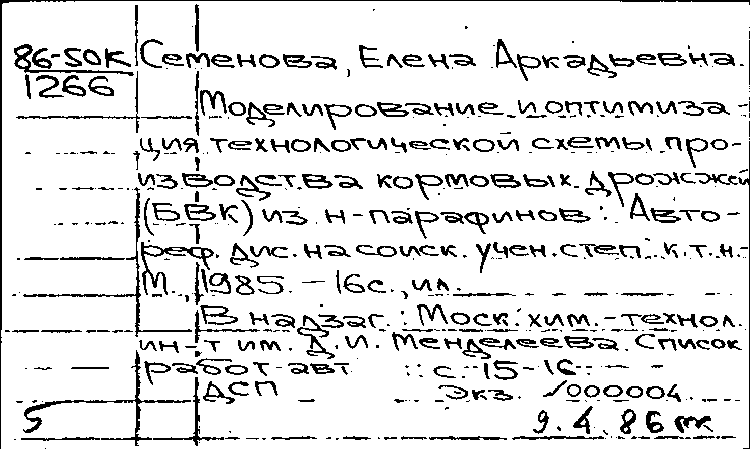 86-50К Семенова, Елена Аркадьевна.
1266
Моделирование и оптимиза-
ция технологической схемы про-
изводства кормовых дрожжей
(БВК) из н-парафинов: Авто-
реф. дис. на соиск. учен. степ. к.т.н.-
М., 1985. - 16с., ил.
В надзаг.: Моск. хим.-технол.
ин-т им. Д. И. Менделеева. Список
работ авт : с. 15-16
ДСП Экз. √000004
5 9.4.86